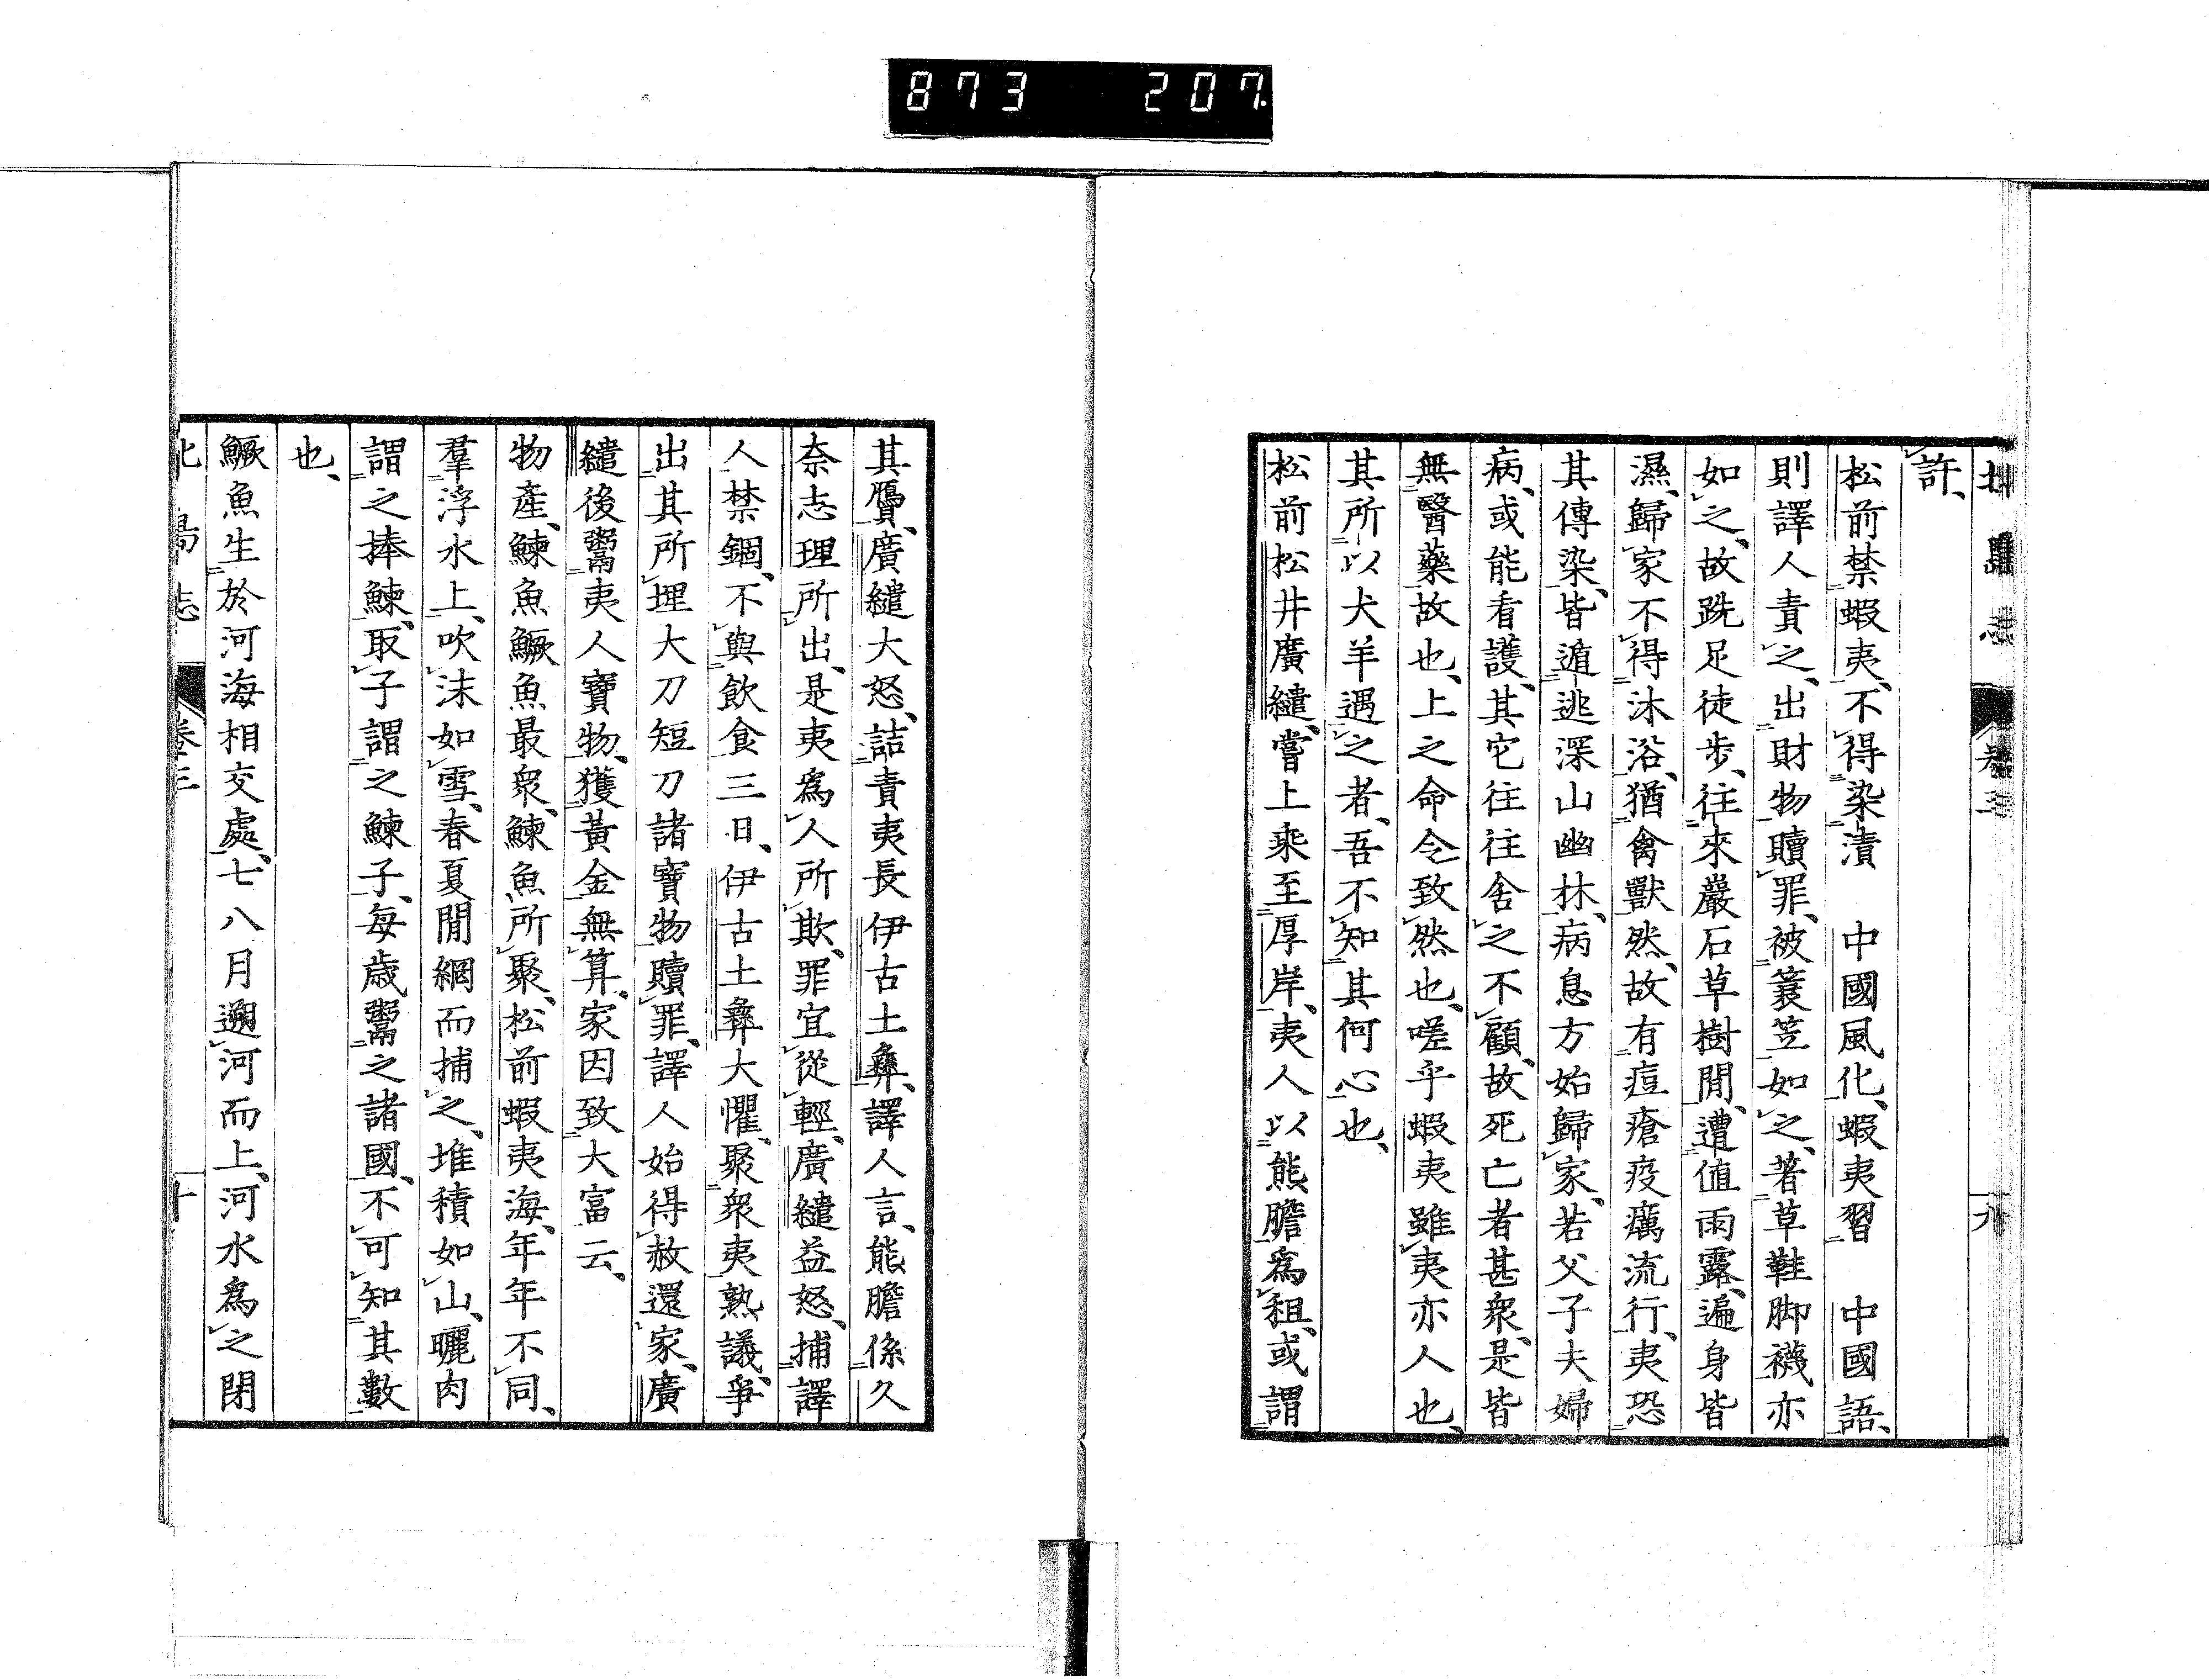 873 207
北島志 卷三 九
許、
松前禁蝦夷、不得染漬 中國風化、蝦夷習 中國語、
則譯人責之、出財物贖罪、被簑笠如之、著草鞋脚襪亦
如之、故跣足徒步、往來巖石草樹閒、遭值雨露、遍身皆
濕、歸家不得沐浴、猶禽獸然、故有痘瘡疫癘流行、夷恐
其傳染、皆遁逃深山幽林、病息方始歸家、若父子夫婦
病、或能看護、其它往往舍之不顧、故死亡者甚衆、是皆
無醫藥故也、上之命令致然也、嗟乎蝦夷雖夷亦人也、
其所以犬羊遇之者、吾不知其何心也、
松前松井廣繾、嘗上乘至厚岸、夷人以熊膽爲租、或謂
其贗、廣繾大怒、詰責夷長伊古土彝、譯人言、熊膽係久
奈志理所出、是夷爲人所欺、罪宜從輕、廣繾益怒、捕譯
人禁錮、不與飲食三日、伊古土彝大懼、聚衆夷熟議、爭
出其所埋大刀短刀諸寶物贖罪、譯人始得赦還家、廣
繾後鬻夷人寶物、獲黃金無算、家因致大富云、
物產、鰊魚鱖魚最衆、鰊魚所聚、松前蝦夷海、年年不同、
羣浮水上、吹沫如雪、春夏閒網而捕之、堆積如山、曬肉
謂之捧鰊、取子謂之鰊子、每歲鬻之諸國、不可知其數
也、
鱖魚生於河海相交處、七八月遡河而上、河水爲之閉
北島志 卷三 十